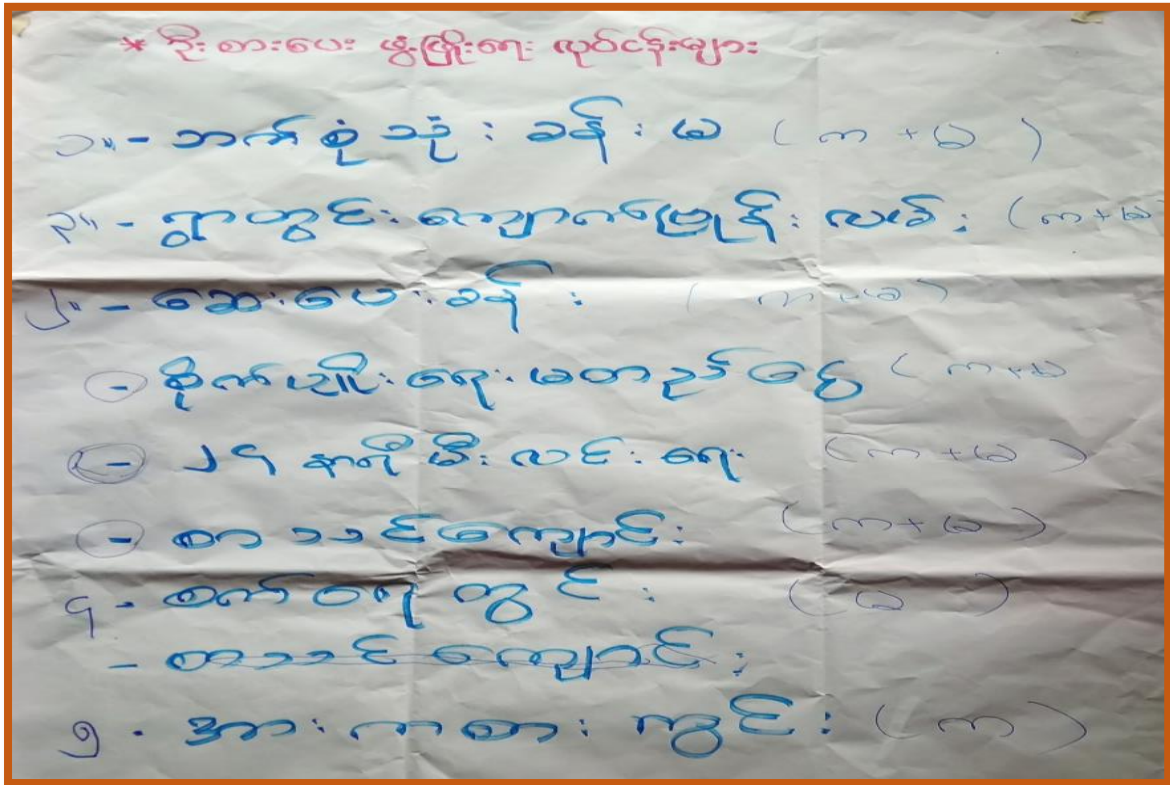 * ဦးစားပေး ဖွံ့ဖြိုးရေး လုပ်ငန်းများ
၁။ - ဘက်စုံသုံးခန်းမ (က+မ)
၃။ - ရွာတွင်းကျောက်ဖြုန်းလမ်း (က+မ)
၂။ - ဆေးပေးခန်း (က+မ)
- စိုက်ပျိုးရေးမတည်ငွေ (က+မ
- ၂၄ နာရီ မီးလင်းရေး (က+မ)
- စာသင်ကျောင်း (က+မ)
၄ - စက်ရေတွင်း (မ)
- စာသင်ကျောင်း
၅ - အားကစားကွင်း (က)